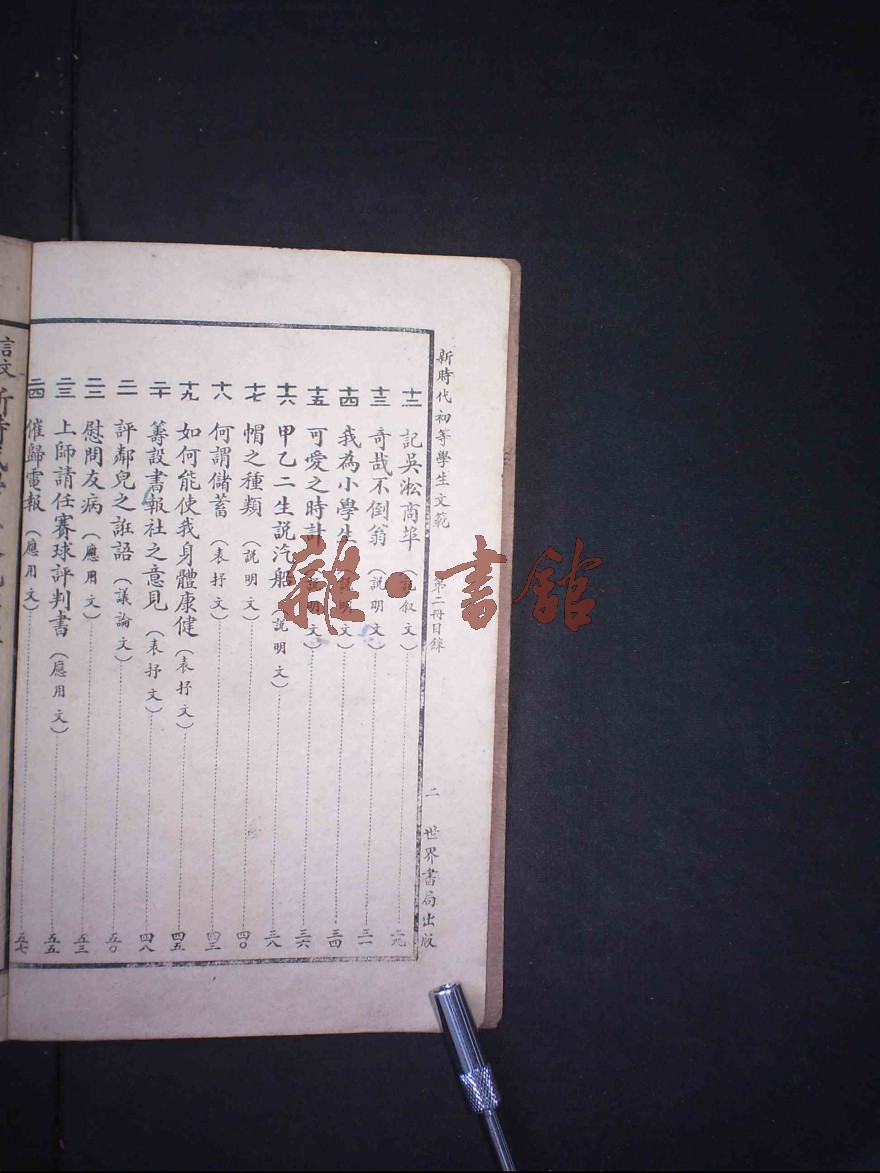 新時代初等學生文範 第二冊目錄 二 世界書局出版
十二 記吳淞商埠（記叙文）二九
十三 奇哉不倒翁（說明文）三一
十四 我為小學生（說明文）三四
十五 可愛之時計（說明文）三六
十六 甲乙二生說汽船（說明文）三八
十七 帽之種類（說明文）四〇
十八 何謂儲蓄（表抒文）四三
十九 如何能使我身體康健（表抒文）四五
二十 籌設書報社之意見（表抒文）四八
二一 評鄰兒之誑語（議論文）五〇
二二 慰問友病（應用文）五三
二三 上師請任賽球評判書（應用文）五五
二四 催歸電報（應用文）五七
雜·書館